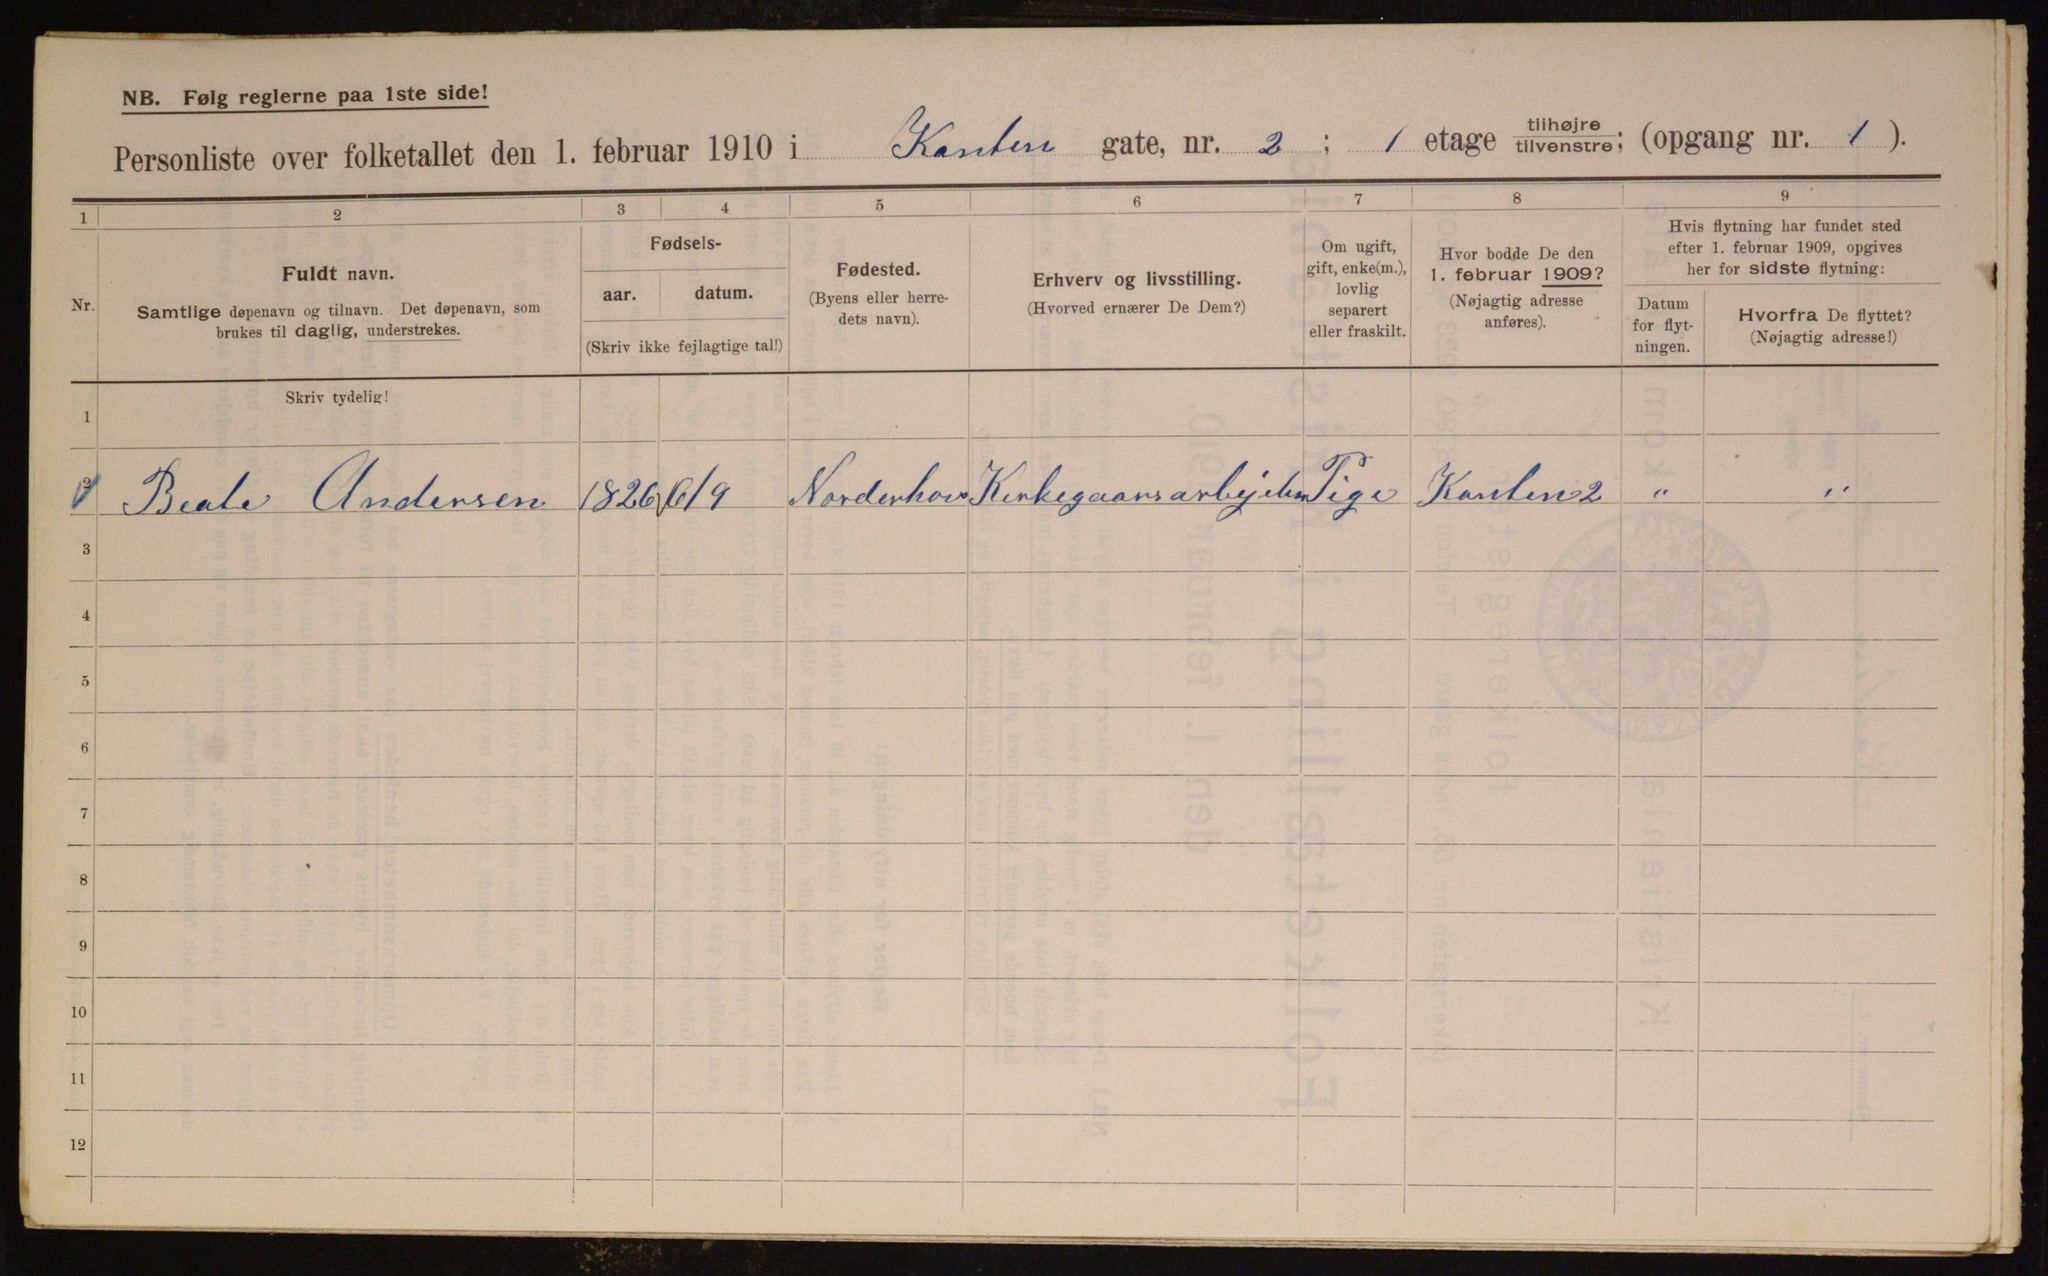 NB. Følg reglerne paa 1ste side!
Personliste over folketallet den 1. februar 1910 i Kanten gate, nr. 2 ; 1 etage tilhøjre tilvenstre; (opgang nr. 1 ).
1 2 3 4 5 6 7 8 9
Nr.
Fuldt navn.
Samtlige døpenavn og tilnavn. Det døpenavn, som
brukes til daglig, understrekes.
Fødsels-
aar. datum.
(Skriv ikke fejlagtige tal!)
Fødested.
(Byens eller herre-
dets navn).
Erhverv og livsstilling.
(Hvorved ernærer De Dem?)
Om ugift,
gift, enke(m.),
lovlig
separert
eller fraskilt.
Hvor bodde De den
1. februar 1909?
(Nøjagtig adresse
anføres).
Hvis flytning har fundet sted
efter 1. februar 1909, opgives
her for sidste flytning:
Datum
for flyt-
ningen.
Hvorfra De flyttet?
(Nøjagtig adresse!)
Skriv tydelig!
1
2 Beate Andersen 1826 6/9 Norderhov Kirkegaarsarbejder Pige Kanten 2 " "
3
4
5
6
7
8
9
10
11
12